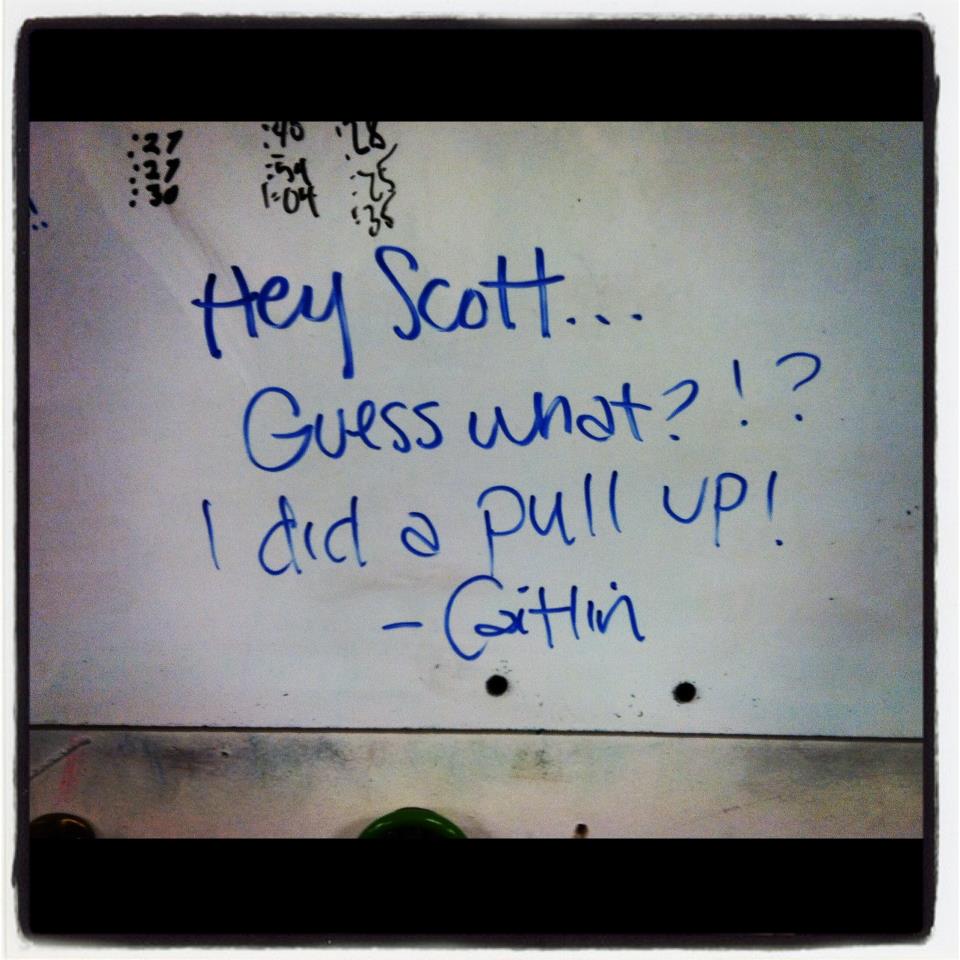 :27 :40 :28
:27 :54 :25
:30 1:04 :36
Hey Scott...
Guess what?!?
I did a pull up!
- Caitlin